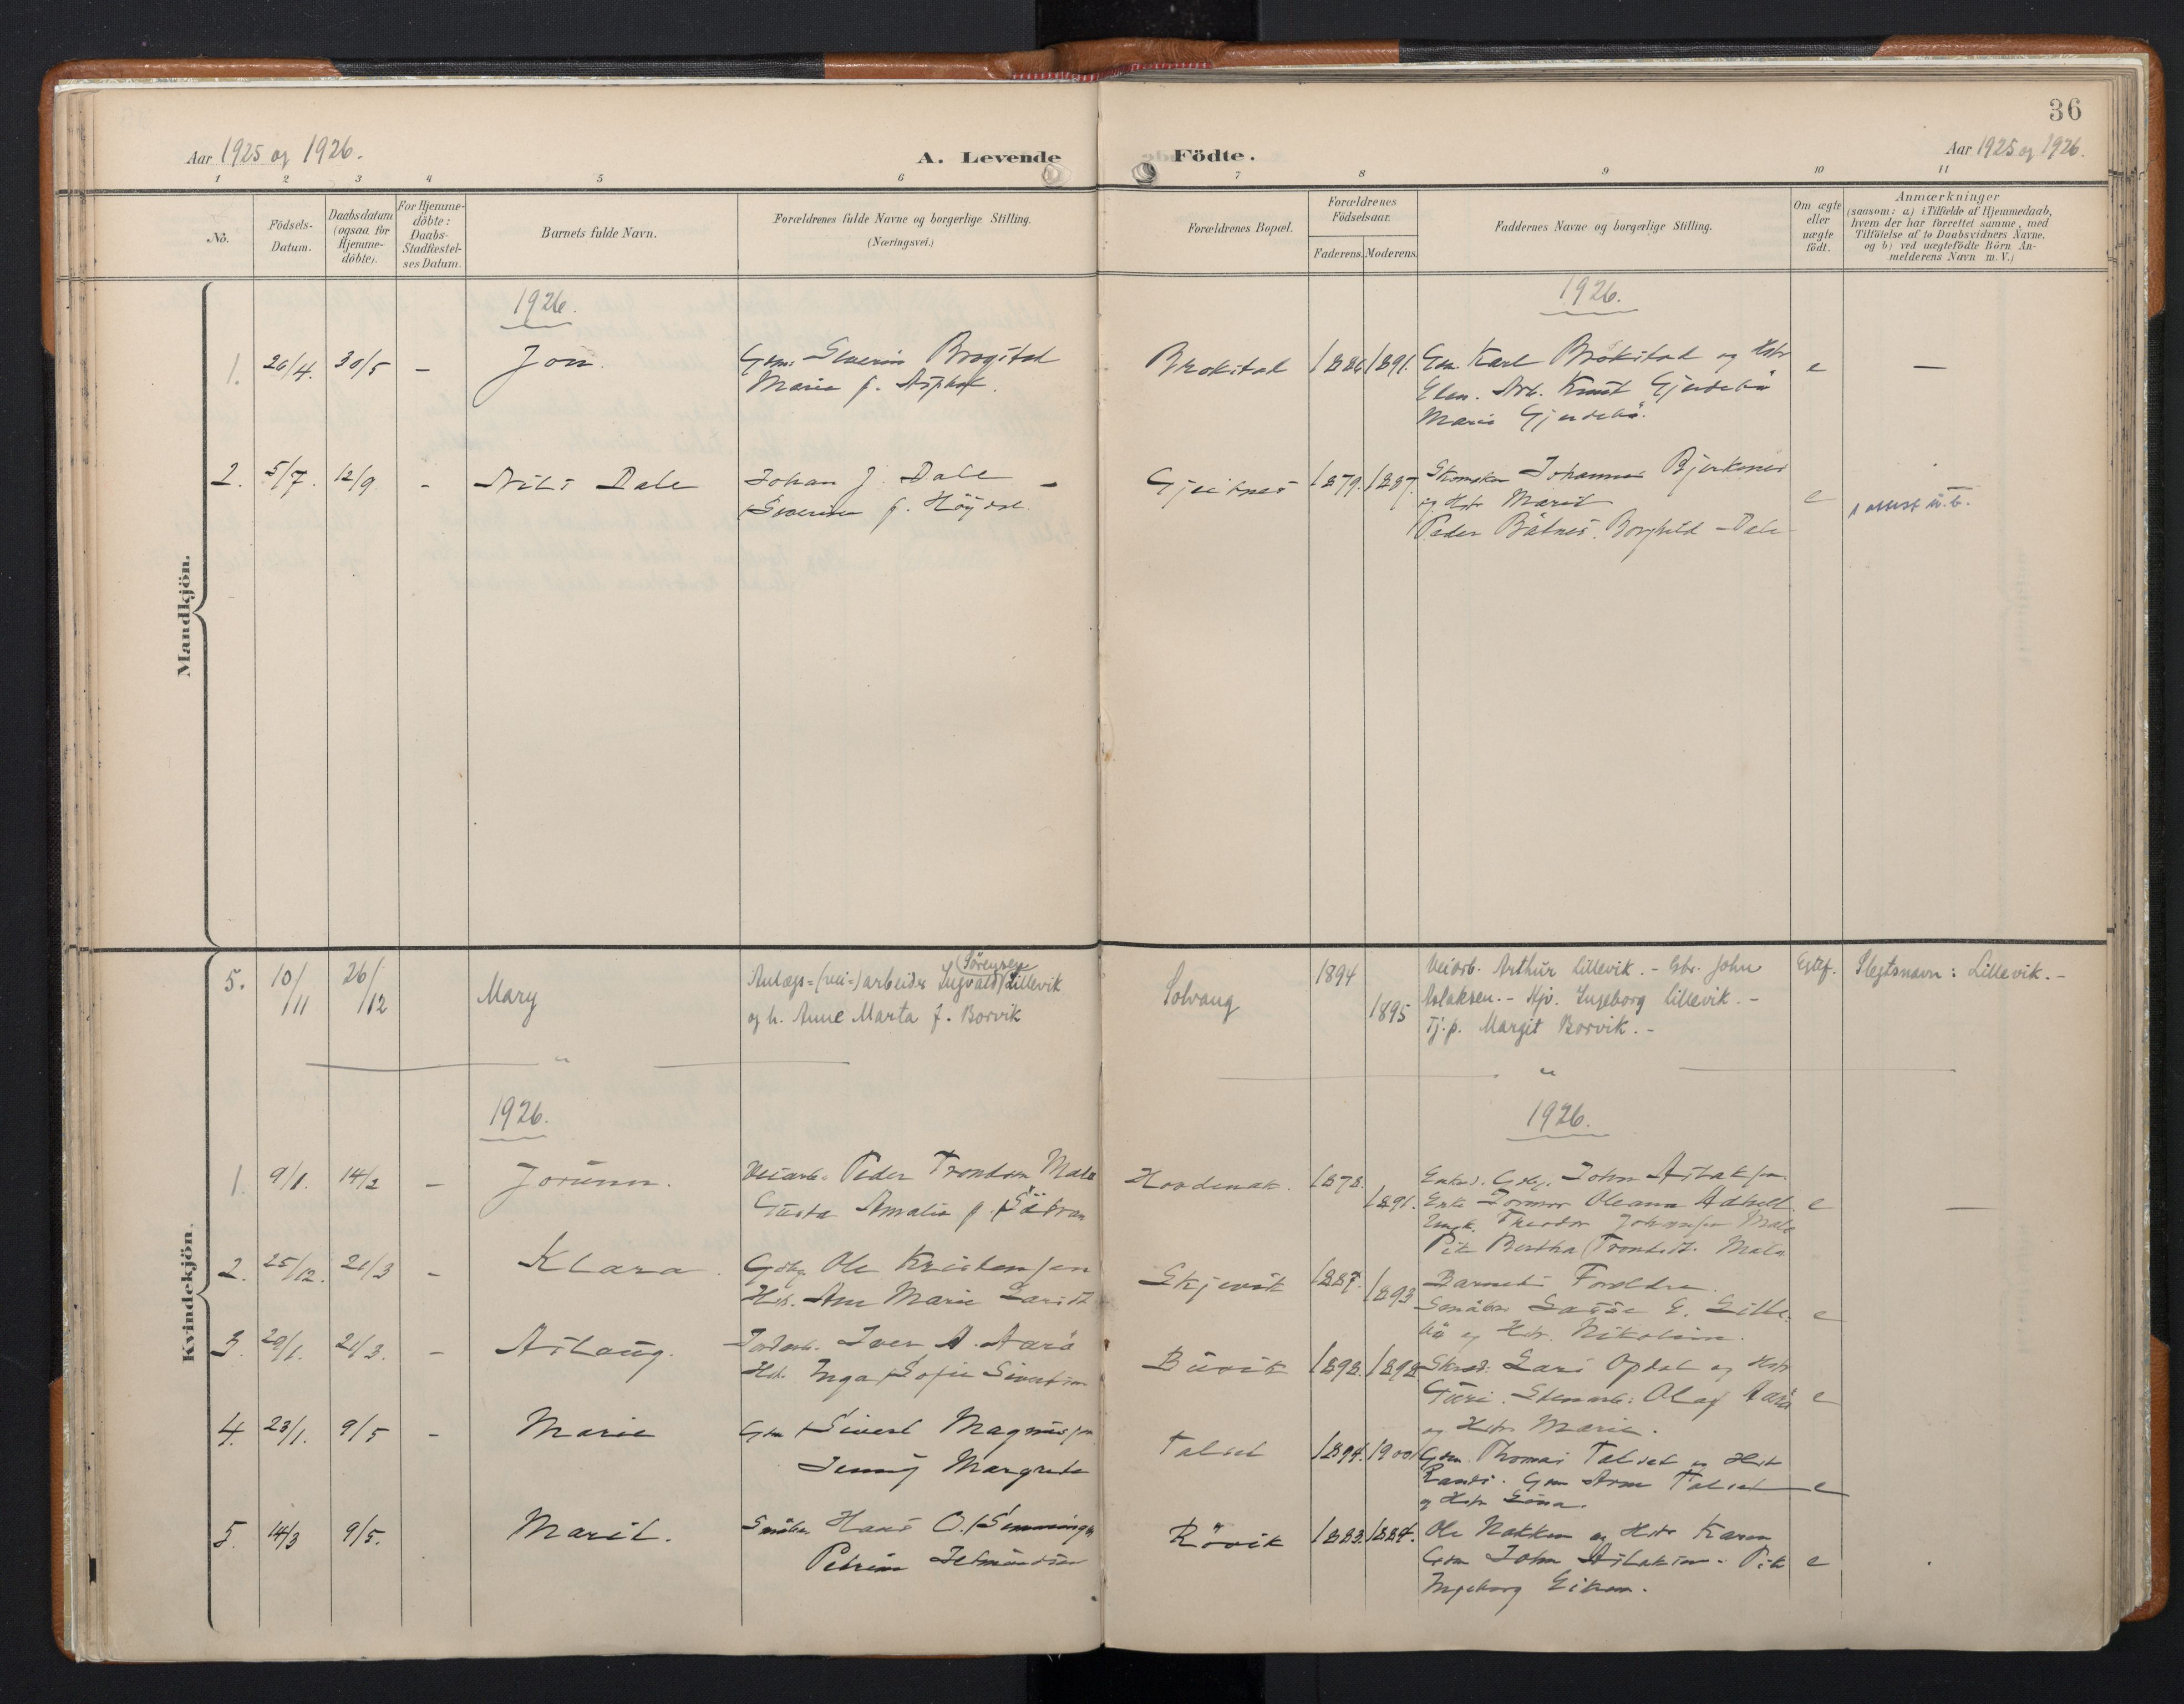 36
Aar 1925 og 1926.
A. Levende
Födte.
Aar 1925 og 1926.
1 2 3 4 5 6 7 8 9 10 11
No.
Födsels-
Datum.
Daabsdatum
(ogsaa for
Hjemme-
döbte).
For Hjemme-
döbte:
Daabs-
Stadfæstel-
ses Datum.
Barnets fulde Navn.
Forældrenes fulde Navne og borgerlige Stilling.
(Næringsvei.)
Forældrenes Bopæl.
Forældrenes
Födselsaar.
Faderens. Moderens.
Faddernes Navne og borgerlige Stilling.
Om ægte
eller
uægte
födt.
Anmærkninger
(saasom: a) i Tilfælde af Hjemmedaab,
hvem der har forrettet samme, med
Tilföielse af to Daabsvidners Navne,
og b) ved uægtefödte Börn An-
melderens Navn m. V.)
Mandkjön.
1926.
1926.
1. 26/4. 30/5 - Jon.
Gbr. Severin Brogstad
Marie f. Asphol.
Brokstad 1886 1891.
Gm. Karl Brokstad og Hstr
Elen. Arb. Knut Gjerdebö
Marie Gjerdebö.
e -
2. 5/7. 12/9 - Nils Dale
Johan J. Dale -
Severine f. Höjdal
Gjeitnes 1879. 1887.
Skomaker Johannes Bjerkenes
og Hstr Marit
Peder Båtnes. Borghild Dale
e
Kvindekjön.
5. 10/11 26/12 Mary
Anlægs=(vei=)arbeider Ingvald (Sörensen) Lillevik
og h. Anne Marta f. Borvik
Solvang 1894 1895
Veiarb. Arthur Lillevik. - Gbr. John
Aslaksen. - Hjv. Ingeborg Lillevik. -
Tj.p. Margit Borvik. -
Egtef.
Slegtsnavn: Lillevik. -
1926.
1926.
1. 9/1. 14/2 - Jorunn.
Veiarb. Peder Trondsen Male
Gusta Amalie f.
Hovdenak. 1878. 1891.
John Aslaksen
Oleanna
Theodor Johannsen Male
Pike Bertha Trondsdt. Male
e -
2. 25/12. 21/3 - Klara.
Ole Kristensen
Hstr. Ane Marie
Skjevik 1887. 1893
Barnets Foreldre.
Lasse E. Lille-
bö og Hstr. Nikoline.
e
3. 29/1. 21/3. - Aslaug.
Iver A. Aarö
Hstr. Inga Sofie Sivertsen
Buvik 1898. 1898
Skred. Lars Opdal og Hstr
Guri. Stenarb. Olaf Aarö
og Hstr Marie.
e
4. 23/1. 9/5 - Marie
Gm Sivert Magnussen
Jenny Margrete
Talset 1894. 1900
Gm. Thomas Talset og Hstr
Randi. Gm Arne Talset
og Hstr Lina.
e
5. 14/3 9/5. Marit.
Hans O.
Petrine
Rövik 1883. 1884.
Ole Nakken og Hstr Karen
Gm John Aslaksen. Pike
Ingeborg Eikrem.
e